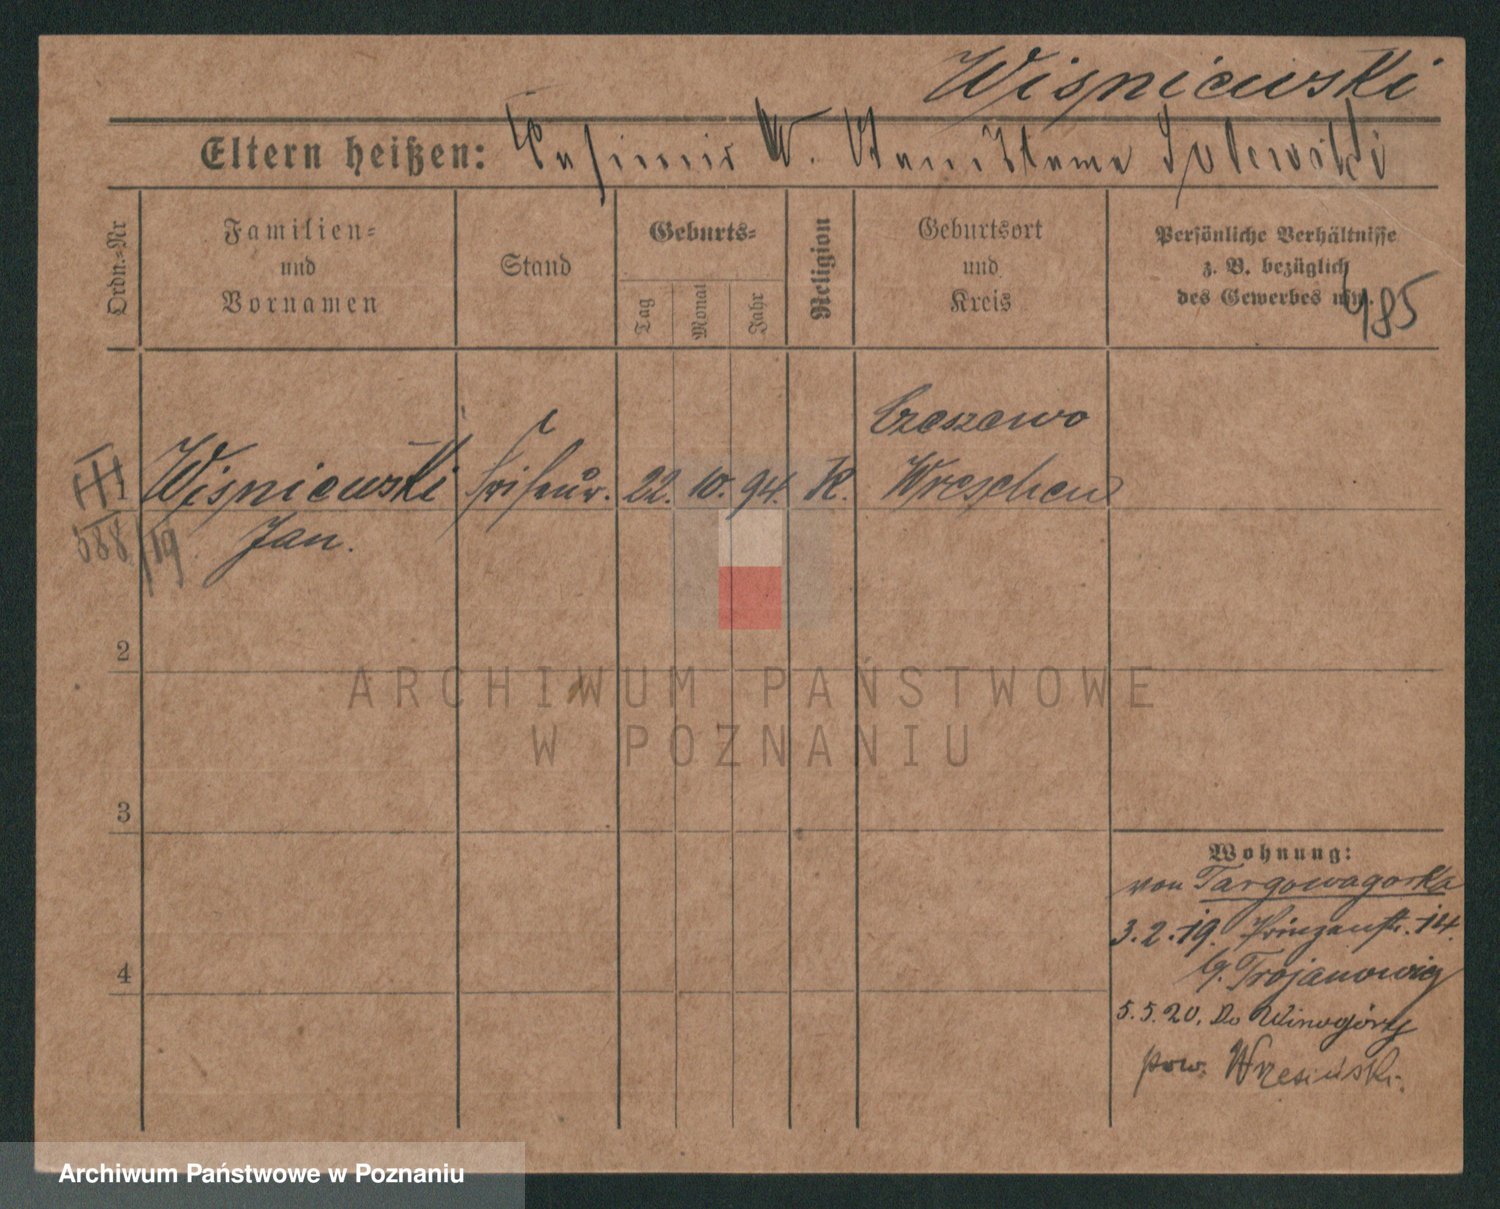 Wiśniewski
Eltern heißen: Casimir W. Stanislawa Sulewski
Ordn.=Nr
Familien=
und
Vornamen
Stand
Geburts=
Tag
Monat
Jahr
Religion
Geburtsort
und
Kreis
Persönliche Verhältnisse
z. B. bezüglich
des Gewerbes usw.
985
Czeszewo
III
1 Wiśniewski Friseur. 22. 10. 94. K. Wreschen
588/19 Jan.
2
ARCHIWUM PAŃSTWOWE
W POZNANIU
3
Wohnung:
von Targowagorka
3.2.19. Prinzenstr. 14.
b. Trojanowicz
4
5.5.20. Do Winogóry
pow. Wrzesiński.
Archiwum Państwowe w Poznaniu